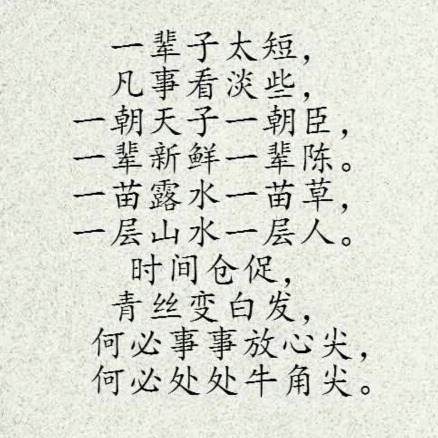 一辈子太短，
凡事看淡些，
一朝天子一朝臣，
一辈新鲜一辈陈。
一苗露水一苗草，
一层山水一层人。
时间仓促，
青丝变白发，
何必事事放心尖，
何必处处牛角尖。